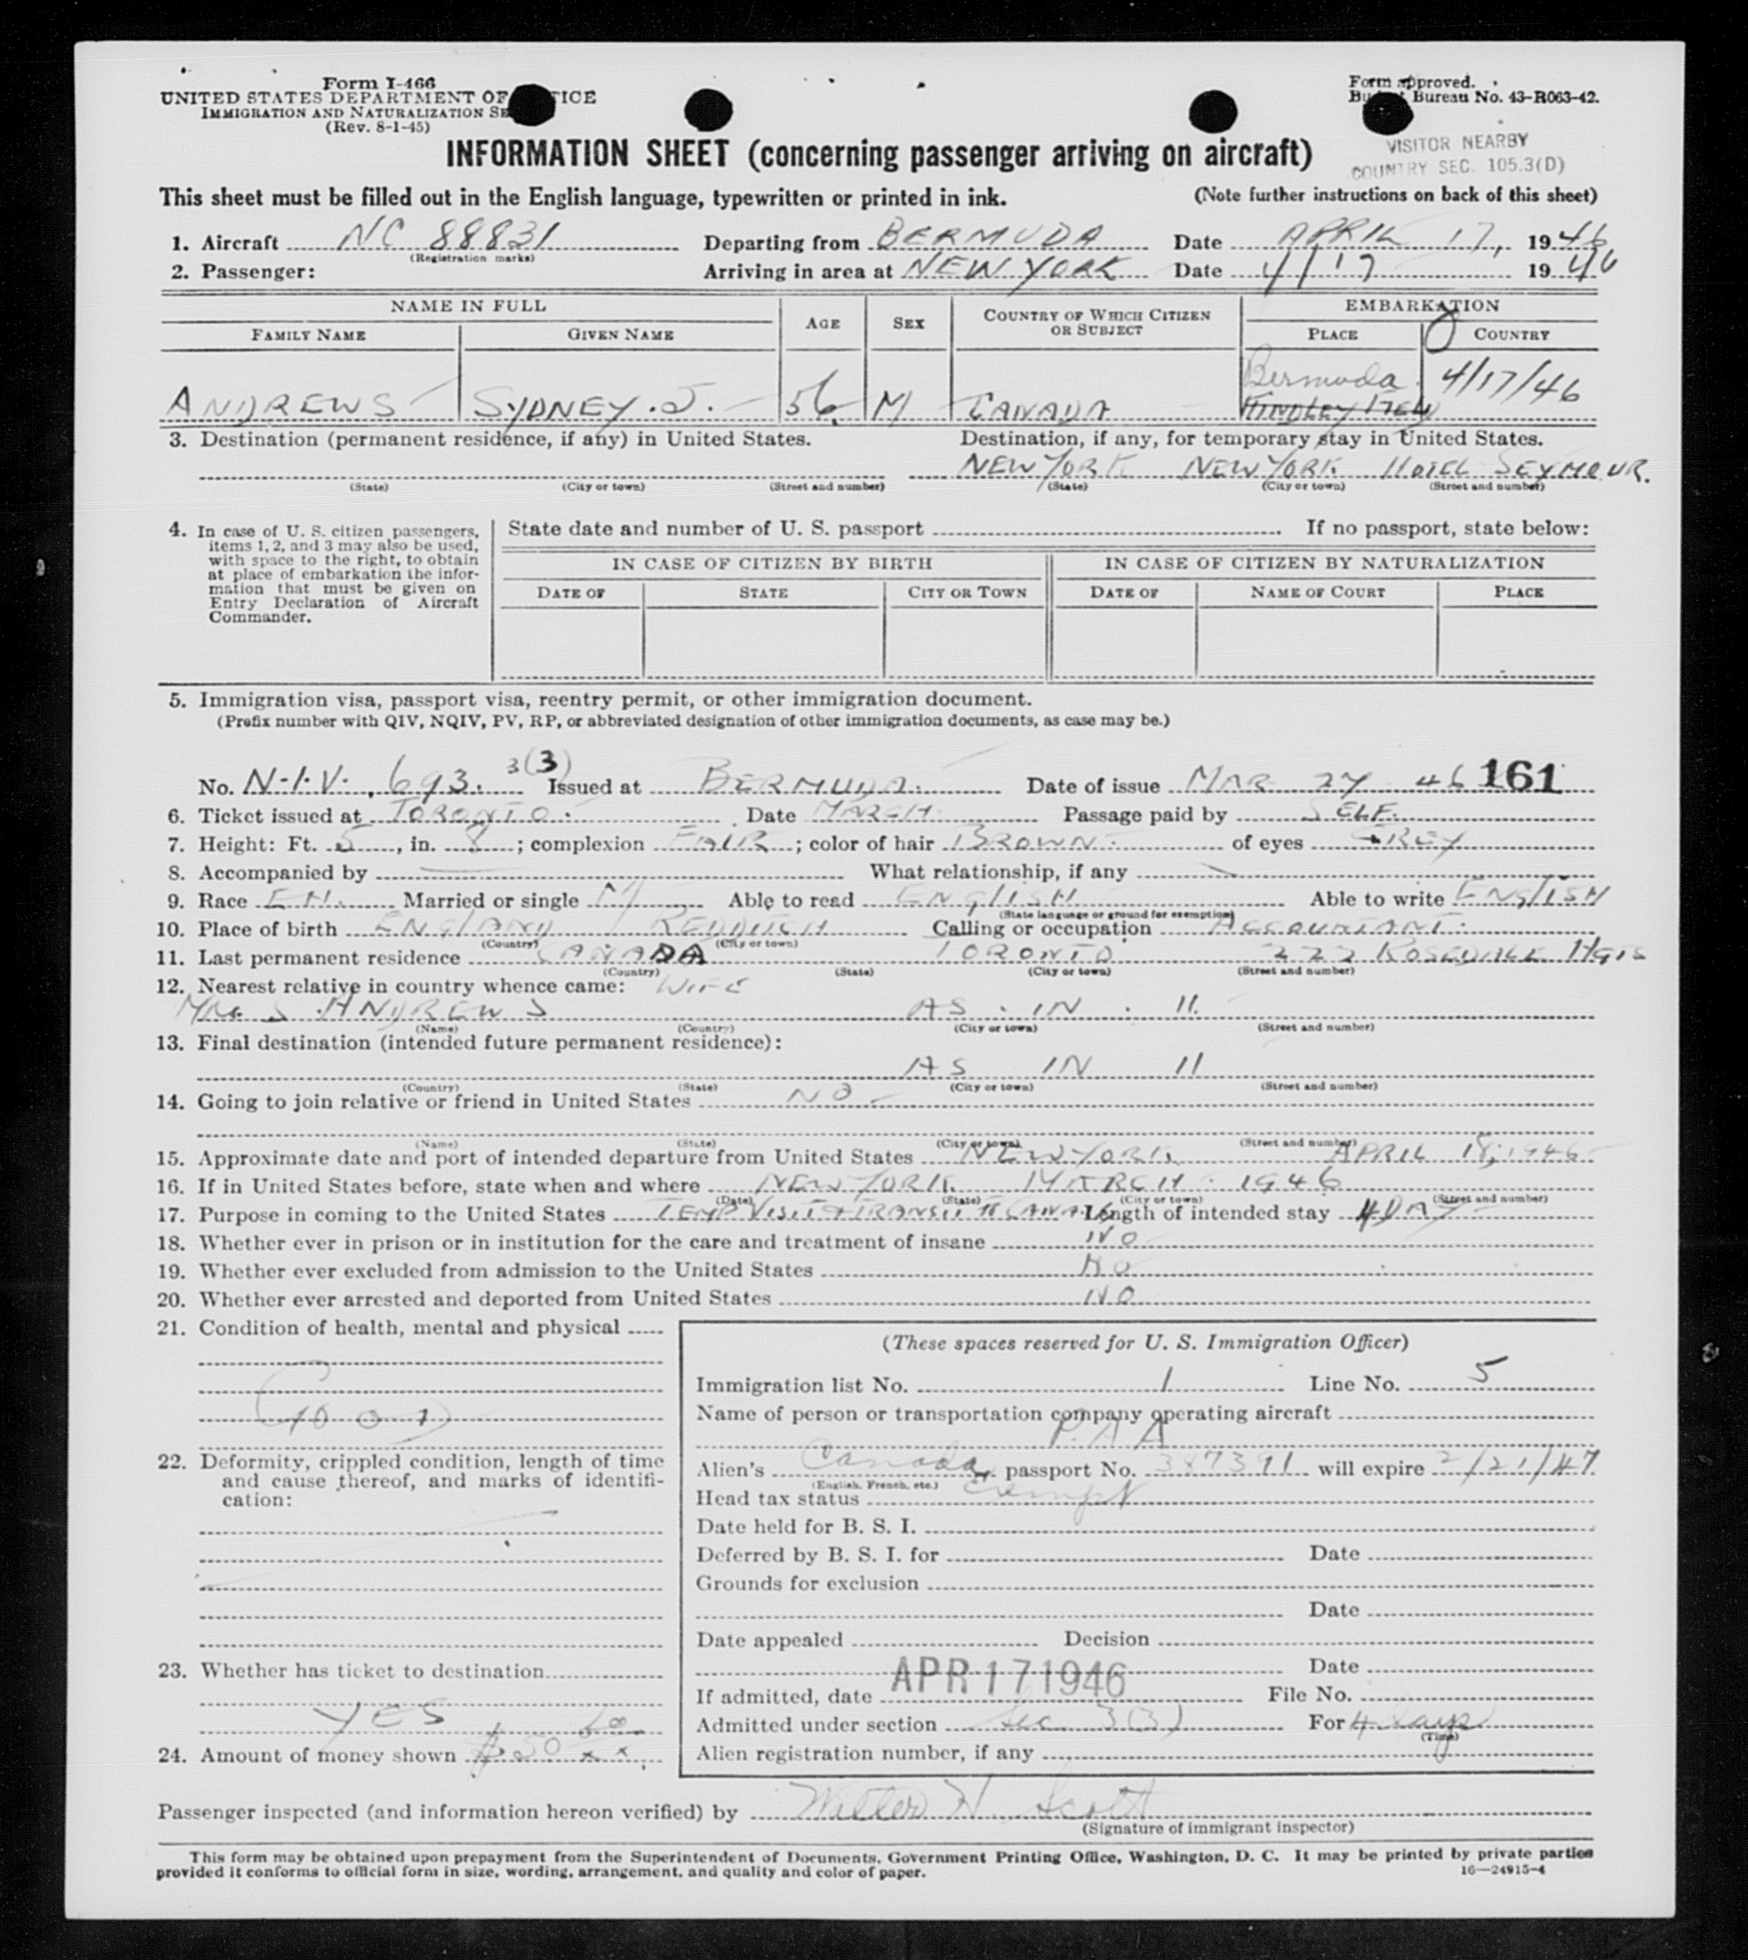 Form I-466
UNITED STATES DEPARTMENT OF
IMMIGRATION AND NATURALIZATION
(Rev. 8-1-45)
Form approved.
Bureau No. 43-R063-42.
INFORMATION SHEET (concerning passenger arriving on aircraft)
VISITOR NEARBY
COUNTRY SEC. 105.3(D)
This sheet must be filled out in the English language, typewritten or printed in ink. (Note further instructions on back of this sheet)
1. Aircraft NC 88831 Departing from BERMUDA Date APRIL 17, 1946
(Registration marks)
2. Passenger: Arriving in area at NEW YORK Date 4/17 1946
NAME IN FULL AGE SEX COUNTRY OF WHICH CITIZEN OR SUBJECT EMBARKATION
FAMILY NAME GIVEN NAME PLACE COUNTRY
Bermuda 4/17/46
ANDREWS SYDNEY. J. 56 M CANADA KINDLEY FIELD
3. Destination (permanent residence, if any) in United States. Destination, if any, for temporary stay in United States.
NEW YORK NEW YORK HOTEL SEYMOUR.
(State) (City or town) (Street and number) (State) (City or town) (Street and number)
4. In case of U. S. citizen passengers, items 1, 2, and 3 may also be used, with space to the right, to obtain at place of embarkation the information that must be given on Entry Declaration of Aircraft Commander.
State date and number of U. S. passport If no passport, state below:
IN CASE OF CITIZEN BY BIRTH IN CASE OF CITIZEN BY NATURALIZATION
DATE OF STATE CITY OR TOWN DATE OF NAME OF COURT PLACE
5. Immigration visa, passport visa, reentry permit, or other immigration document.
(Prefix number with QIV, NQIV, PV, RP, or abbreviated designation of other immigration documents, as case may be.)
No. N.I.V. 693. 3(3) Issued at BERMUDA. Date of issue MAR 27 46 161
6. Ticket issued at TORONTO. Date MARCH. Passage paid by SELF.
7. Height: Ft. 5, in. 8; complexion FAIR; color of hair BROWN. of eyes GREY
8. Accompanied by — What relationship, if any
9. Race EN. Married or single M Able to read ENGLISH Able to write ENGLISH
(State language or ground for exemption)
10. Place of birth ENGLAND REDDITCH Calling or occupation ACCOUNTANT.
(Country) (City or town)
11. Last permanent residence CANADA TORONTO 222 ROSEDALE HGTS
(Country) (State) (City or town) (Street and number)
12. Nearest relative in country whence came: WIFE
MRS S ANDREWS AS IN 11.
(Name) (Country) (City or town) (Street and number)
13. Final destination (intended future permanent residence):
AS IN 11
(Country) (State) (City or town) (Street and number)
14. Going to join relative or friend in United States NO
(Name) (State) (City or town) (Street and number)
15. Approximate date and port of intended departure from United States NEW YORK APRIL 18, 1946
16. If in United States before, state when and where NEW YORK MARCH. 1946
(Date) (State) (City or town) (Street and number)
17. Purpose in coming to the United States TEMP VISIT + TRANSIT TO CANADA Length of intended stay 4 DAY
18. Whether ever in prison or in institution for the care and treatment of insane NO
19. Whether ever excluded from admission to the United States NO
20. Whether ever arrested and deported from United States NO
21. Condition of health, mental and physical
GOOD
22. Deformity, crippled condition, length of time and cause thereof, and marks of identification:
23. Whether has ticket to destination
YES
24. Amount of money shown
(These spaces reserved for U. S. Immigration Officer)
Immigration list No. 1 Line No. 5
Name of person or transportation company operating aircraft
P.A.A
Alien's Canada passport No. 387391 will expire 2/21/47
(English, French, etc.)
Head tax status exempt
Date held for B. S. I.
Deferred by B. S. I. for Date
Grounds for exclusion
Date
Date appealed Decision
Date
If admitted, date APR 17 1946 File No.
Admitted under section Sec 3(3) For 4 days
(Time)
Alien registration number, if any
Passenger inspected (and information hereon verified) by H. Scott
(Signature of immigrant inspector)
This form may be obtained upon prepayment from the Superintendent of Documents, Government Printing Office, Washington, D. C. It may be printed by private parties
provided it conforms to official form in size, wording, arrangement, and quality and color of paper. 16—24915-4